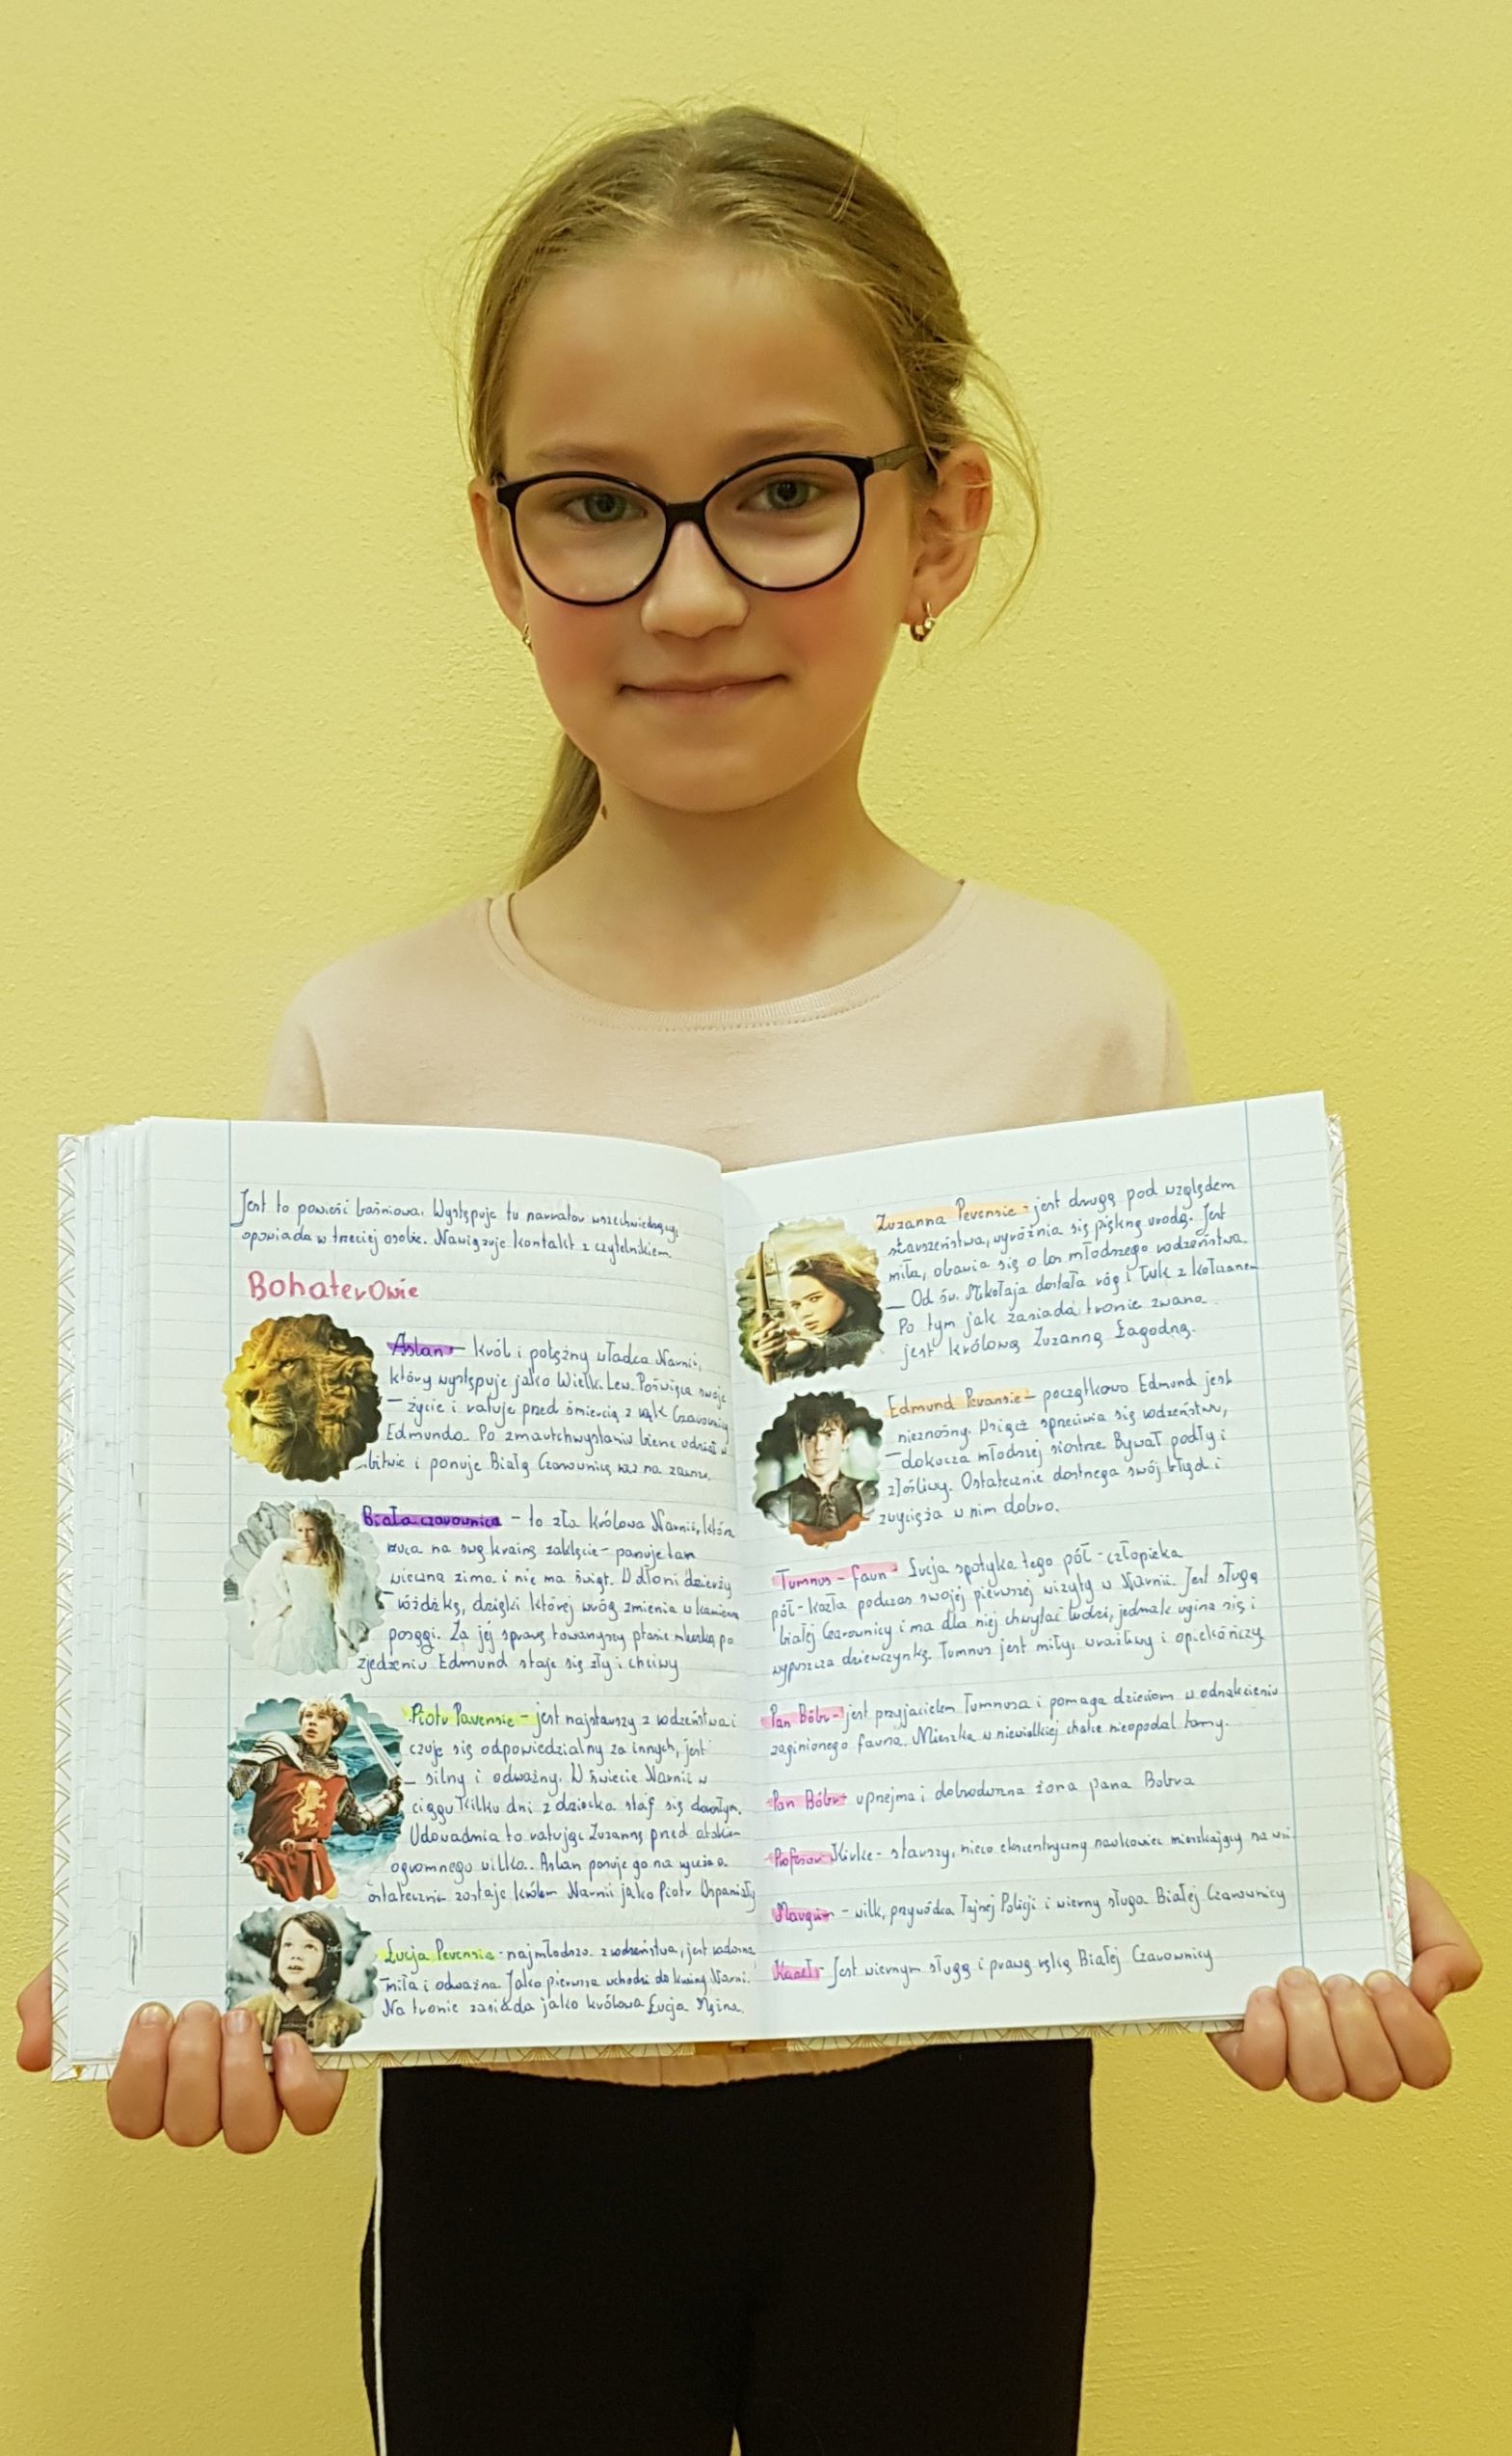 Jest to powieść baśniowa. Występuje tu narrator wszechwiedzący,
opowiada w trzeciej osobie. Nawiązuje kontakt z czytelnikiem.
BohaterOwie
Aslan - król i potężny władca Narnii,
który występuje jako Wielki Lew. Poświęca swoje
życie i ratuje przed śmiercią z rąk Czarownicy
Edmunda. Po zmartwychwstaniu bierze udział w
bitwie i
Białą Czarownicę raz na zawsze.
Biała czarownica - to zła królowa Narnii, która
rzuca na swą krainę zaklęcie - panuje tam
wieczna zima i nie ma świąt. W dłoni dzierży
różdżkę, dzięki której wróg zmienia w kamienne
posągi. Za jej sprawą
ptasie mleczka po
zjedzeniu Edmund staje się zły i chciwy
Piotr Pavensie - jest najstarszy z rodzeństwa i
czuje się odpowiedzialny za innych, jest
silny i odważny. W świecie Narnii w
ciągu kilku dni z dziecka stał się dorosłym.
Udowadnia to ratując Zuzannę przed atakiem
ogromnego wilka. Aslan pasuje go na rycerza
ostatecznie zostaje królem Narnii jako Piotr Wspaniały
Łucja Pevensie - najmłodsza z rodzeństwa, jest radosna,
miła i odważna. Jako pierwsza wchodzi do krainy Narnii.
Na tronie zasiada jako królowa Łucja Mężna.
Zuzanna Pevensie - jest drugą pod względem
starszeństwa, wyróżnia się piękną urodą. Jest
miła, obawia się o los młodszego rodzeństwa.
Od św. Mikołaja dostała róg i łuk z kołczanem
Po tym jak zasiada tronie zwana
jest królową Zuzanną Łagodną.
Edmund Pevansie - początkowo Edmund jest
nieznośny. Wciąż sprzeciwia się rodzeństwu,
dokucza młodszej siostrze. Bywał podły i
złośliwy. Ostatecznie dostrzega swój błąd i
zwycięża w nim dobro.
Tumnus - faun - Łucja spotyka tego pół-człopieka
pół-kozła podczas swojej pierwszej wizyty w Narnii. Jest sługą
białej Czarownicy i ma dla niej chwytać ludzi, jednak ugina się i
wypuszcza dziewczynkę. Tumnus jest miły, wrażliwy i opiekóńczy
Pan Bóbr - jest przyjacielem Tumnusa i pomaga dzieciom w odnalezieniu
zaginionego fauna. Mieszka w niewielkiej chatce nieopodal tamy.
Pan Bóbr - uprejma i dobroduszna żona pana Bobra
Profesor Kirke - starszy, nieco ekscentryczny naukowiec mieszkający na wsi
Maugrim - wilk, przywódca Tajnej Policji i wierny sługa Białej Czarownicy
Karzeł - Jest wiernym sługą i prawą ręką Białej Czarownicy